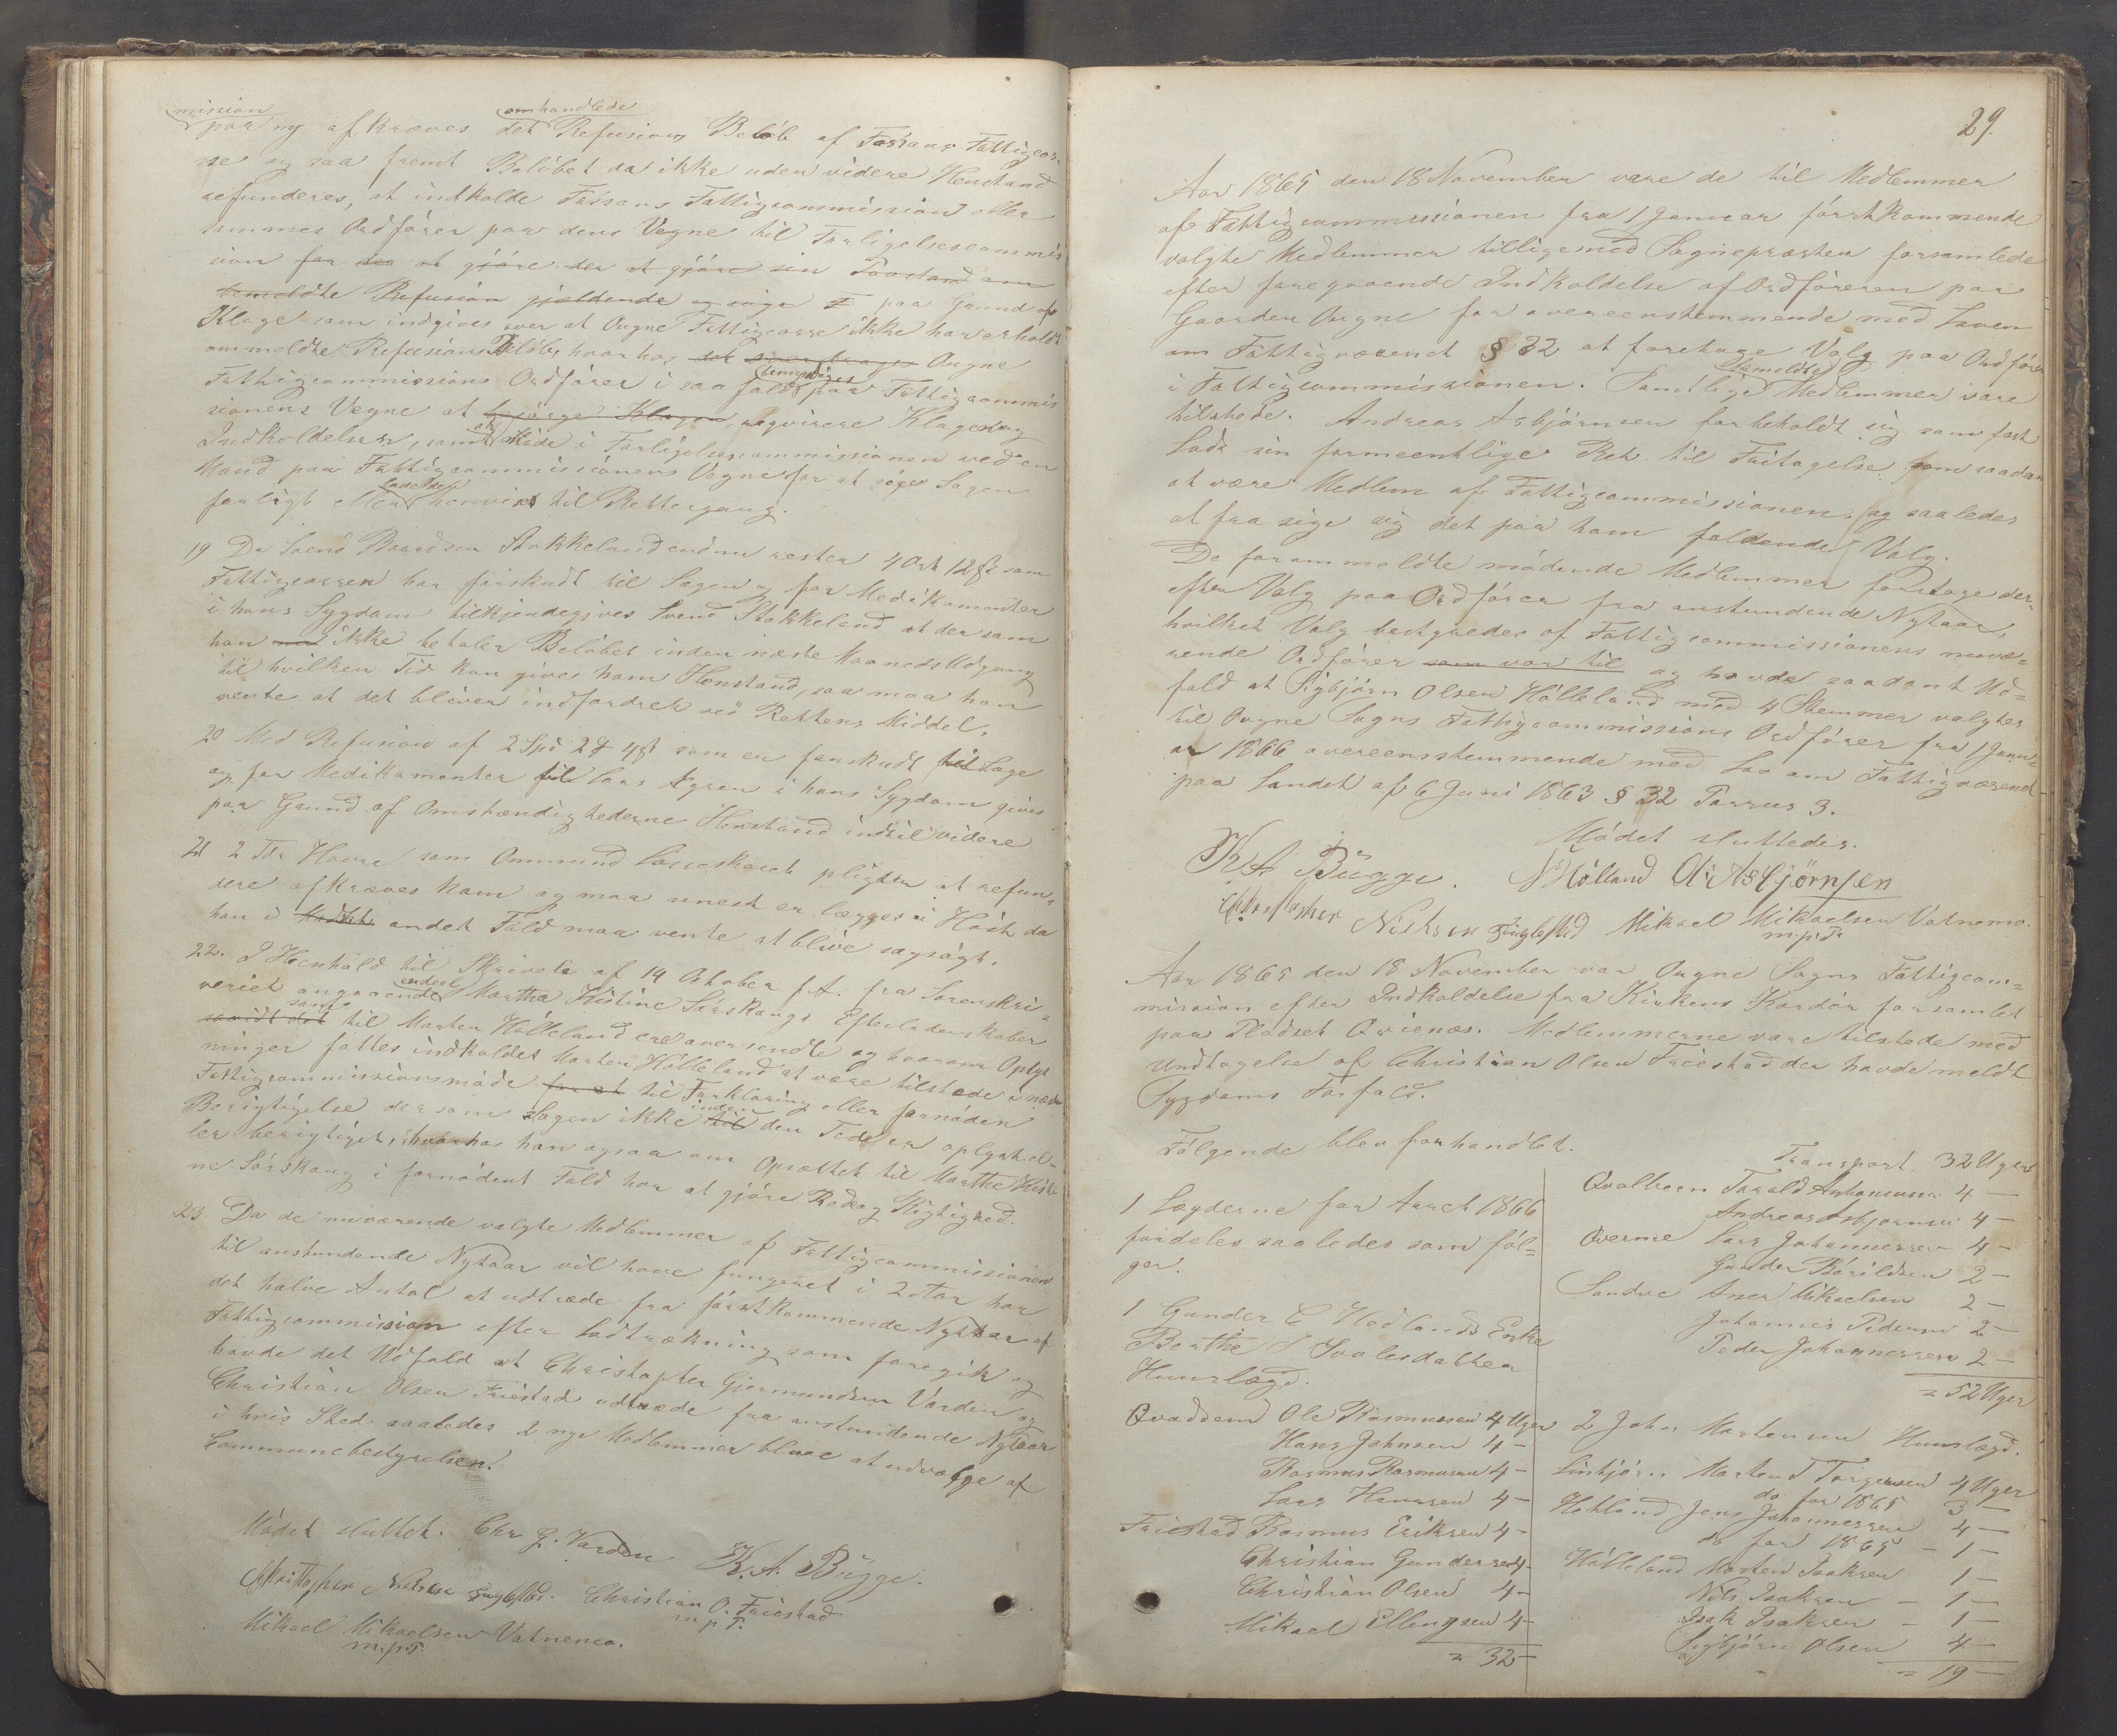 mission omhandlede
paa ny afkræves det Refusions Beløb af Fossans Fattigcas-
se og saa fremt Beløbet da ikke uden videre Henstand
refunderes, at indkalde Fossans Fattigcommission eller
sammes Ordfører paa dens Vegne til Forligelsescommis
sion for der at gjøre der at gjøre sin Paastand om
bemeldte Refusion gjældende og søge F paa Grund af
Klage som indgives over at Ougne Fattigcasse ikke har erholdt
ommeldte Refusions Beløb, hvorhos det Ougne
Fattigcommissions Ordfører i saa fald paa Fattigcommis
sionens Vegne at besørge Klagen, reqvirere Klage og
Indkaldelsen, samt at møde i Forligelsescommissionen ved en
Mand paa Fattigcommissionens Vegne for at søge Sagen
forligt eller lade den henvist til Rettergang.
19 Da Svend Baardsen Stokkeland endnu rester 4 Ort 12 ß som
Fattigcassen har forskudt til Lægen og for Medikamenter
i hans Sygdom tilkjendegives Svend Stokkeland at dersom
han ikke betaler Beløbet inden næste Maaneds Udgang
til hvilken Tid kan gives ham Henstand, saa maa han
vente at det bliver indfordret ved Rettens Middel.
20 Med Refusion af 2 Spd 2 ₰ 4 ß som er forskudt til Læge
og for Medikamenter til Lars Ogren i hans Sygdom gives
paa Grund af Omstændighederne Henstand indtil videre
21 2 Tdr Havre som Ommund pligter at refun-
dere afkræves ham og maa senest er lægges i Høst da
han i Modsat andet Fald maa vente at blive sagsøgt.
22. I Henhold til Skrivelse af 14 Oktober f.A. fra Sorenskri-
veriet angaaende endeel Martha Kistine Sørskougs Efterladenskaber
savidt det samt til Morten Hølleland ere oversendte og hvorom Oplys
ninger fattes indkaldes Morten Hølleland at være tilstede i næste
Fattigcommissionsmøde for at til Forklaring eller fornøden
Berigtigelse dersom Sagen ikke til inden den Tid er oplyst el-
ler berigtiget, hvorhos han ogsaa om Opsættet til Marthe Kisti
ne Sørskoug i fornødent Fald har at gjøre Rede og Rigtighed.
23. Da de nuværende valgte Medlemmer af Fattigcommissionen
til anstundende Nytaar vil have fungeret i 2 Aar har
det halve Antal at udtræde fra førstkommende Nytaar af
Fattigcommission efter Lodtrækning som foregik og
havde det Udfald at Christopher Gjermundsen Varden og
Christian Olsen Friestad udtræde fra anstundende Nytaar
i hvis Sted saaledes 2 nye Medlemmer blive at udvælge af
Communebestyrelsen.
Mødet sluttet. Chr G. Varden K. A. Bügge.
Nielsen Fuglestad. Christian O. Friestad
m.p.P.
Mikael Mikaelsen Vatnemo.
m.p.P.
29.
Aar 1865 den 18 November vare de til Medlemmer
af Fattigcommissionen fra 1 Januar førstkommende
valgte Medlemmer tilligemed Sognepræsten forsamlede
efter foregaaende Indkaldelse af Ordføreren paa
Gaarden Ougne for overeenstemmende med Loven
om Fattigvæsenet § 32 at foretage Valg paa Ordfører
i Fattigcommissionen. Samtlige bemeldte Medlemmer vare
tilstede. Andreas Asbjørnsen forbeholdt sig som fast
Lods sin formeentlige Ret til Fritagelse som saadan
at være Medlem af Fattigcommissionen, og saaledes
at fra sige sig det paa ham faldende Valg.
De forommeldte mødende Medlemmer foretoge der-
efter Valg paa Ordfører fra anstundende Nytaar,
hvilket Valg bestyredes af Fattigcommissionens nuvæ-
rende Ordfører som var til og havde saadant Ud-
fald at Sigbjørn Olsen Hølleland med 4 Stemmer valgtes
til Ougne Sogns Fattigcommissions Ordfører fra 1 Janu-
ar 1866 overeensstemmende med Lov om Fattigvæsenet
paa Landet af 6 Juni 1863 § 32 Passus 3.
Mødet sluttedes.
K A Bügge. Hølland A: Asbjörnsen
Nielsen Fuglestad Mikael Mikaelsen Vatnemo.
m.p.P.
Aar 1865 den 18 November var Ougne Sogns Fattigcom-
mission efter Indkaldelse fra Kirkens Kordør forsamlet
paa Pladset Qvienæs. Medlemmerne vare tilstede med
Undtagelse af Christian Olsen Friestad der havde meldt
Sygdoms Forfald.
Følgende blev forhandlet.
1 Lægderne for Aaret 1866
fordeles saaledes som føl-
ger.
1 Gunder C Hødlands Enke
Berthe S Svalesdatter
Huuslægd.
Qvaddem Ole Rasmussen 4 Uger
Hans Johnsen 4 -
Rasmus Rasmusen 4 -
Lars Hansen 4 -
Friestad Rasmus Eriksen 4 -
Christian Gundersen 4 -
Christian Olsen 4 -
Mikael Ellingsen 4 -
= 32 -
Transport 32 Uger
Qvalbeen Torald Antonsen 4 -
Andreas Asbjørnsen 4 -
Qverme Lars Johannessen 4 -
Gunder Borildsen 2 -
Sandve Aner Mikaelsen 2 -
Johannes Pedersen 2 -
Peder Johannessen 2 -
= 52 Uger
2 John Mortensen Huuslægd.
Linkjørn Morten T Torgersen 4 Uger
do for 1865 3 -
Hetland Jens Johannessen 4 -
do for 1865 - 1 -
Hølleland Morten Isaksen 1 -
Nils Isaksen - 1 -
Isak Isaksen - 1 -
Sigbjørn Olsen 4 -
= 19 -